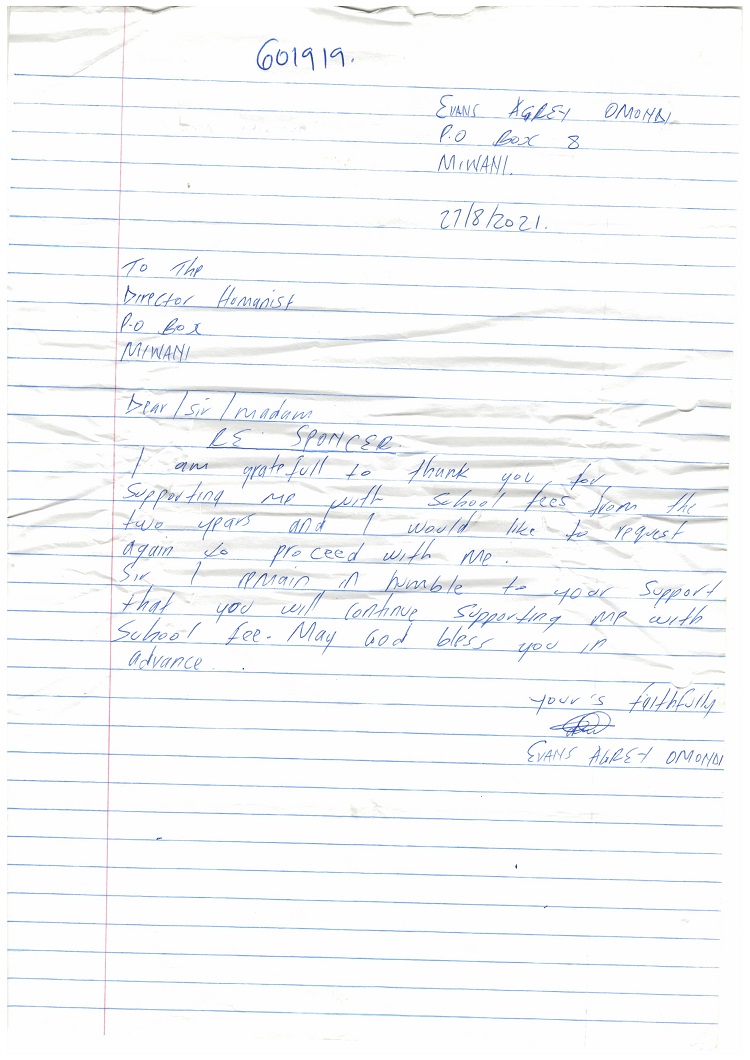 601919.
EVANS AGREY OMONDI
P.O BOX 8
MIWANI.
27/8/2021.
To The
Director Homanist
P.O BOX
MIWANI
Dear / Sir / madam
RE: SPONCER.
I am gratefull to thank you for
Supporting me with School fees from the
two years and I would like to request
again to proceed with me.
Sir I remain in humble to your Support
that you will continue Supporting me with
School fee. May God bless you in
advance.
your's faithfully
EVANS AGREY OMONDI